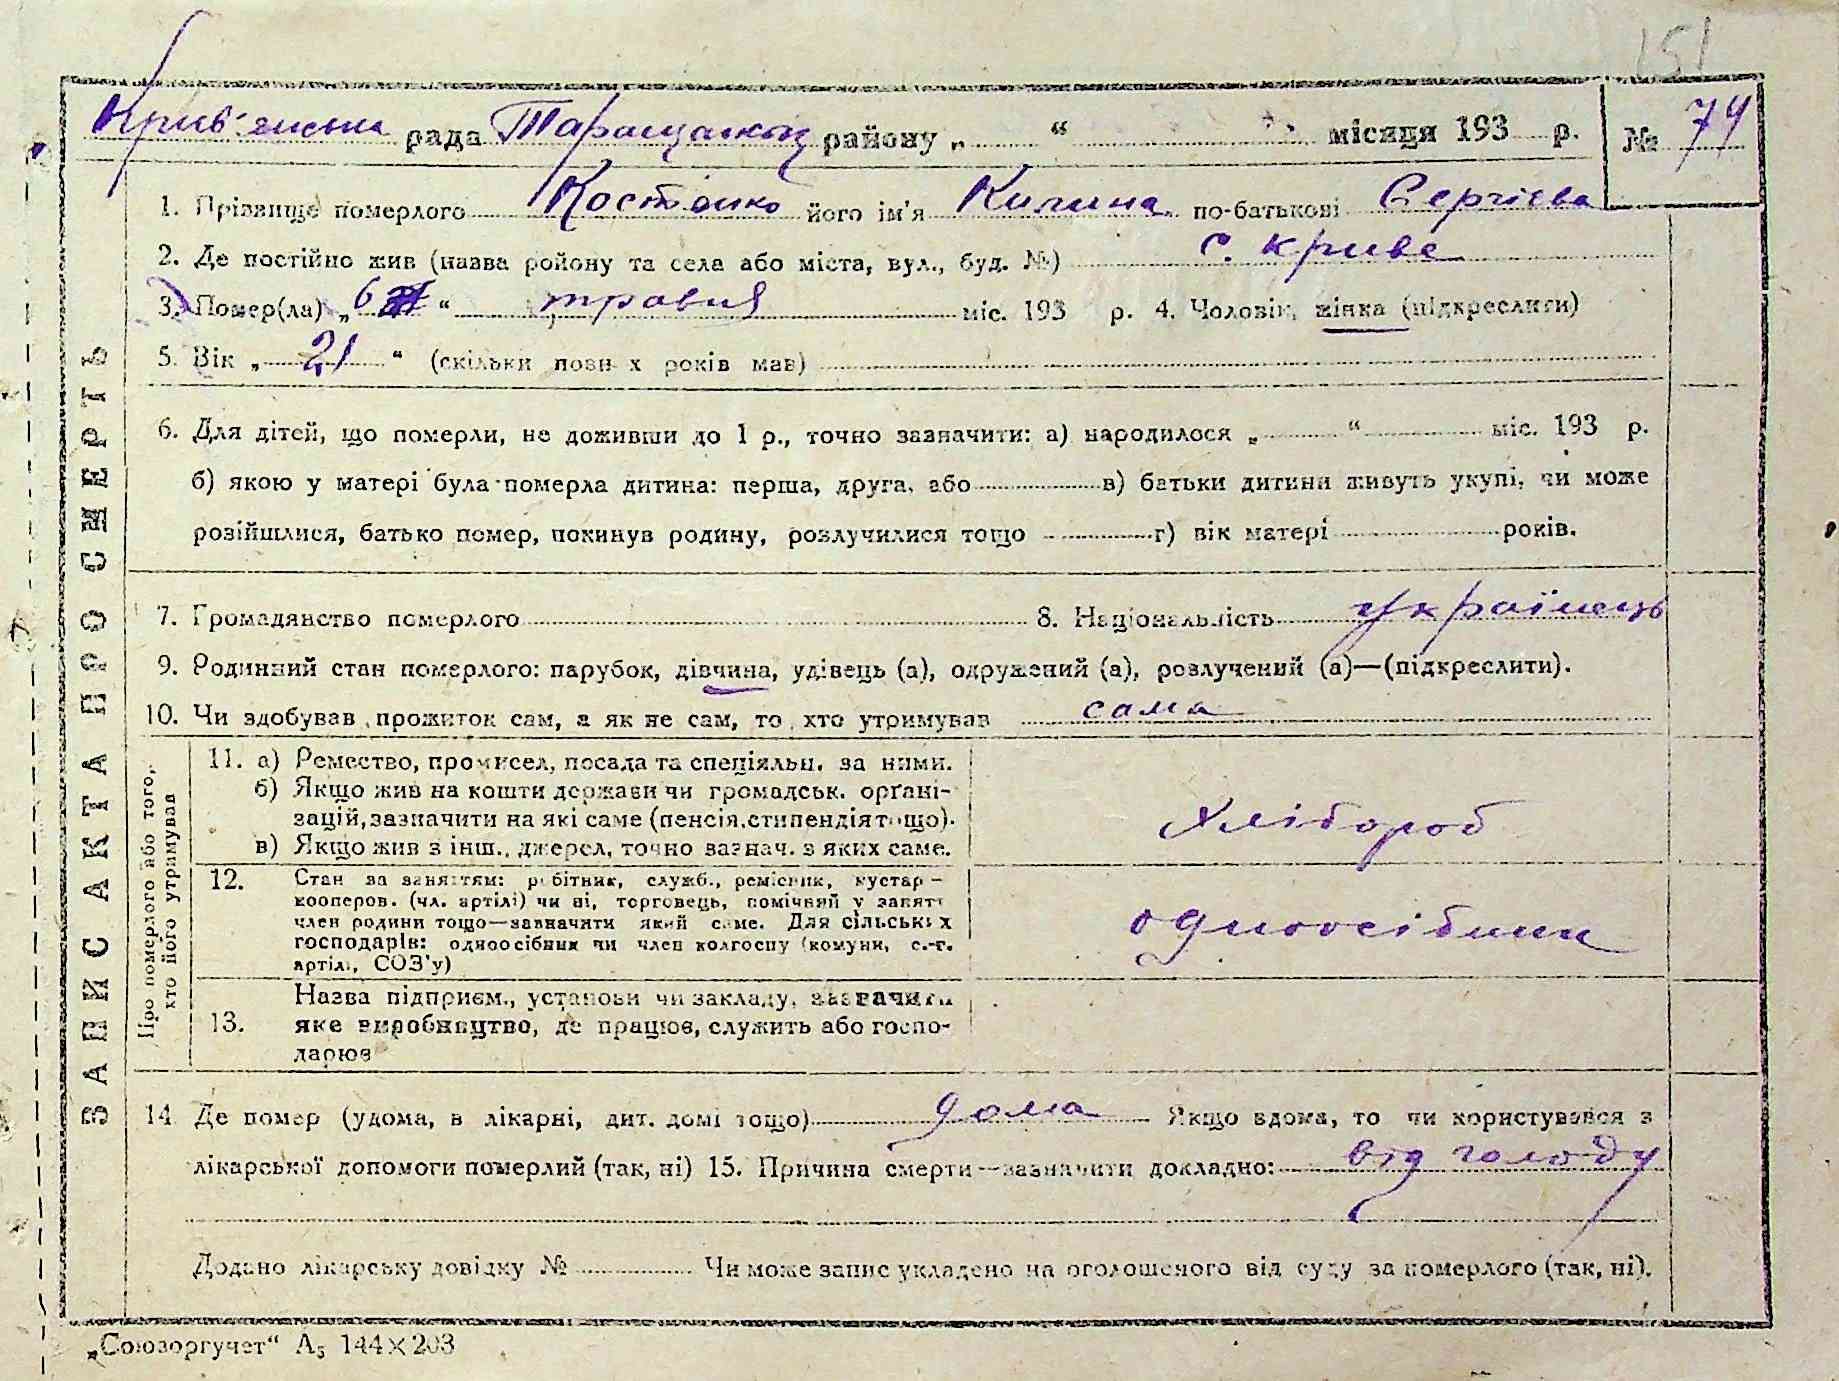 151
Крив'янська рада Таращанськ району „ “ місяця 193 р. № 74
1. Прізвище померлого Костенко його ім'я Килина по-батькові Сергієва
2. Де постійно жив (назва ройону та села або міста, вул., буд. №) с. Криве
3. Помер(ла) „ 6 “ травня міс. 193 р. 4. Чоловік, жінка (підкреслити)
5. Вік „ 21 “ (скільки повн х років мав)
6. Для дітей, що померли, не доживши до 1 р., точно зазначити: а) народилося „ “ міс. 193 р.
б) якою у матері була померла дитина: перша, друга, або в) батьки дитини живуть укупі, чи може
розійшлися, батько помер, покинув родину, розлучилися тощо г) вік матері років.
7. Громадянство померлого 8. Національність українець
9. Родинний стан померлого: парубок, дівчина, удівець (а), одружений (а), розлучений (а)—(підкреслити).
10. Чи здобував прожиток сам, а як не сам, то хто утримував сама
ЗАПИС АКТА ПРО СМЕРТЬ
Про померлого або того,
хто його утримував
11. а) Ремество, промисел, посада та спеціяльн. за ними.
б) Якщо жив на кошти держави чи громадськ. органі-
зацій, зазначити на які саме (пенсія, стипендія тощо).
в) Якщо жив з інш., джерел, точно зазнач. з яких саме.
хлібороб
12. Стан за заняттям: робітник, служб., ремісник, кустар-
кооперов. (чл. артілі) чи ні, торговець, помічний у занятт
член родини тощо—зазначити який саме. Для сільських
господарів: одноосібник чи член колгоспу (комуни, с.-г.
артілі, СОЗ'у)
одноосібник
13. Назва підприєм., установи чи закладу, зазначити
яке виробництво, де працює, служить або госпо-
дарює
14 Де помер (удома, в лікарні, дит. домі тощо) дома Якщо вдома, то чи користувався з
лікарської допомоги померлий (так, ні) 15. Причина смерти—зазначити докладно: від голоду
Додано лікарську довідку № Чи може запис укладено на оголошеного від суду за померлого (так, ні).
„Союзоргучет“ А5 144×203